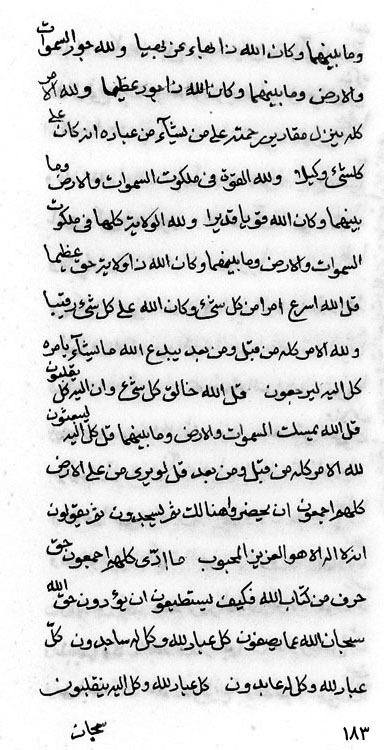 وما بينهما وكان الله ذا بهاء عز بهيا ولله جود السموات
والارض وما بينهما وكان الله ذا جود عظيما ولله الامر
كله ينزل مقادير رحمته على من يشاء من عباده انه كان على
كلشئ وكيلا ولله القوة فى ملكوت السموات والارض وما
بينهما وكان الله قويا قديرا ولله الولاية كلها فى ملكوت
السموات والارض وما بينهما وكان الله ذا ولاية حق عظيما
قل الله اسرع امرا من كل شئ وكان الله على كل شئ رقيبا
ولله الامر كله من قبل ومن بعد يبدع الله ما يشاء بامره
كل اليه ليرجعون قل الله خالق كل شئ وان اليه كل يقلبون
قل الله يمسك السموات والارض وما بينهما قل كل اليه يبعثون
لله الامر كله من قبل ومن بعد قل لو يرى من على الارض
كلهم اجمعون ان يحضروا هنالك ثم ليسجدون ثم يقولون
انه لا اله الا هو العزيز المحبوب ما ادى كلهم اجمعون حق
حرف من كتاب الله فكيف يستطيعون ان يؤدون حق الله
سبحان الله عما يصفون كل عباد لله وكل له ساجدون كل
عباد لله وكل له عابدون كل عباد لله وكل اليه ينقلبون
سبحان
١٨٣